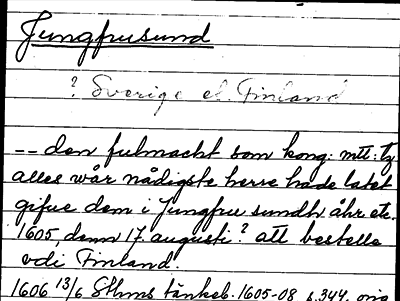 Jungfrusund
? Sverige el. Finland
-- den fulmacht som kong: mtt: ty
alles wår nådigste herre hade latet
gifue dem i Jungfru sundh åhr etc.
1605, denn 17 augusti? att bestelle
vdi Finland.
1606 13/6 Sthms tänkeb. 1605-08 s. 344, orig